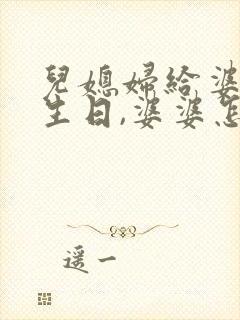 兒媳婦給婆
生日,婆婆怎
遥一